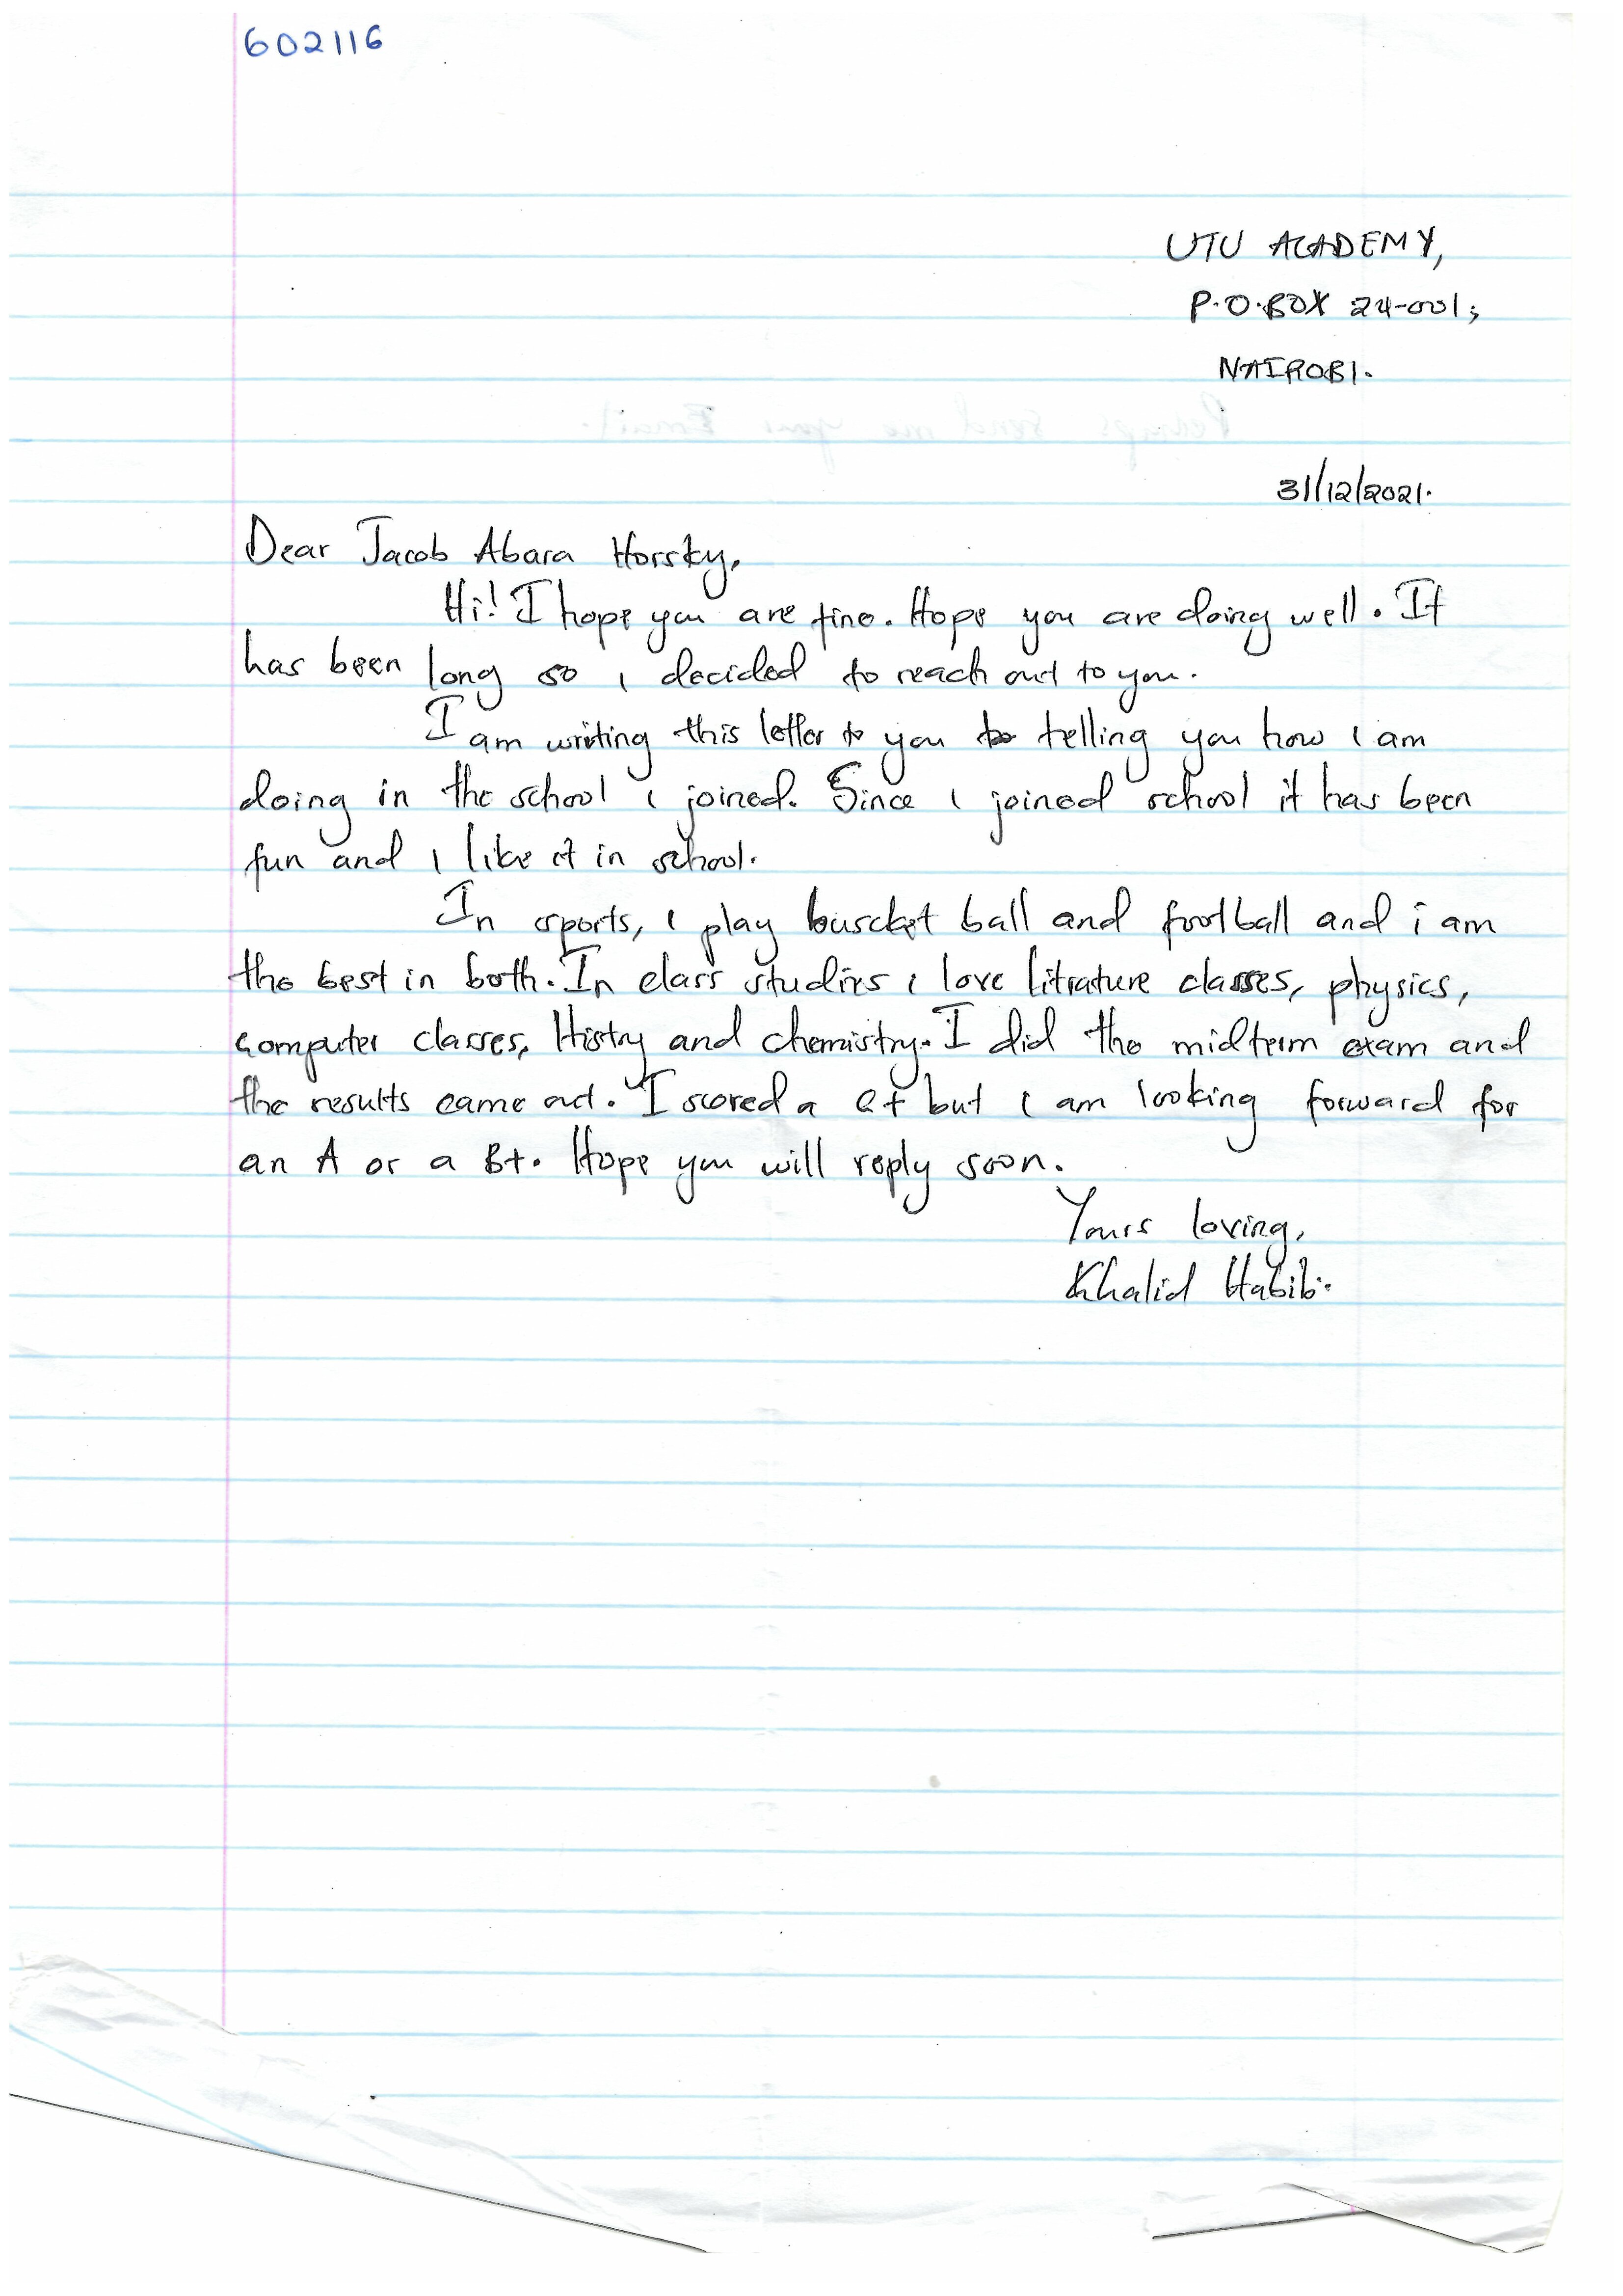 602116
UTU ACADEMY,
P.O.BOX 24-001;
NAIROBI.
Perhaps send me your Email.
31/12/2021.
Dear Jacob Abara Horsky,
Hi! I hope you are fine. Hope you are doing well. It
has been long so i decided to reach out to you.
I am writing this letter to you telling you how i am
doing in the school i joined. Since i joined school it has been
fun and i like it in school.
In sports, i play buscket ball and football and i am
the best in both. In class studies i love litrature classes, physics,
computer classes, Histry and chemistry. I did the midterm exam and
the results came out. I scored a C+ but i am looking forward for
an A or a B+. Hope you will reply soon.
Yours loving,
Khalid Habib.